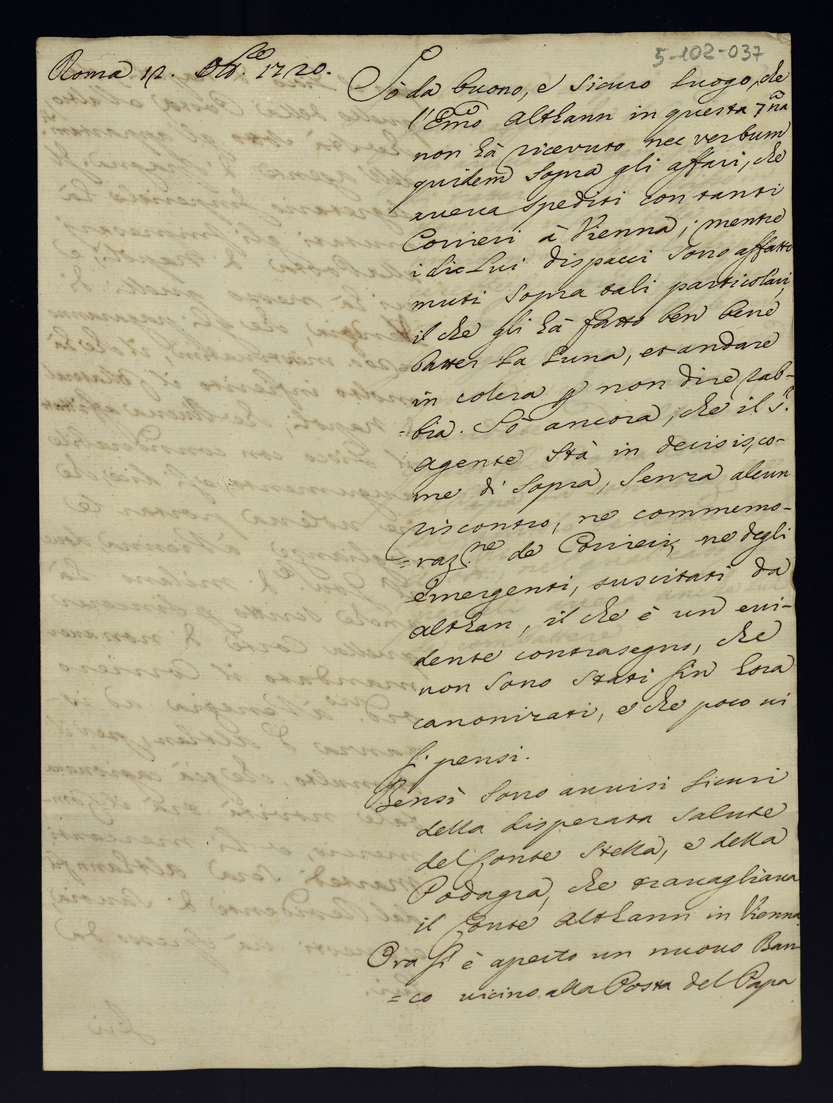 5-102-037
Roma 12. Ott.re 1720.
Sò da buono, e sicuro luogo, che
l'Emo Althann in questa 7ma
non hà ricevuto nec verbum
quidem sopra gli affari, che
aveva spediti con tanti
Corrieri à Vienna; mentre
i di Lui dispacci sono affatto
muti sopra tali particolari,
il che gli hà fatto ben bene
batter la Luna, et andare
in colera p non dire rab-
=bia. Sò ancora, che il s.r
agente stà in decisis, co-
me di sopra, senza alcun
riscontro, ne commemo-
=raz.ne de Corrieri, ne degli
emergenti, suscitati da
althan, il che è un evi-
dente contrasegno, che
non sono stati fin hora
canonizati, e che poco vi
si pensi.
Bensì sono avvisi sicuri
della disperata salute
del Conte Stella, e della
Podagra, che travagliava
il Conte Althann in Vienna
Ora si è aperto un nuovo Ban-
=co vicino alla Posta del Papa